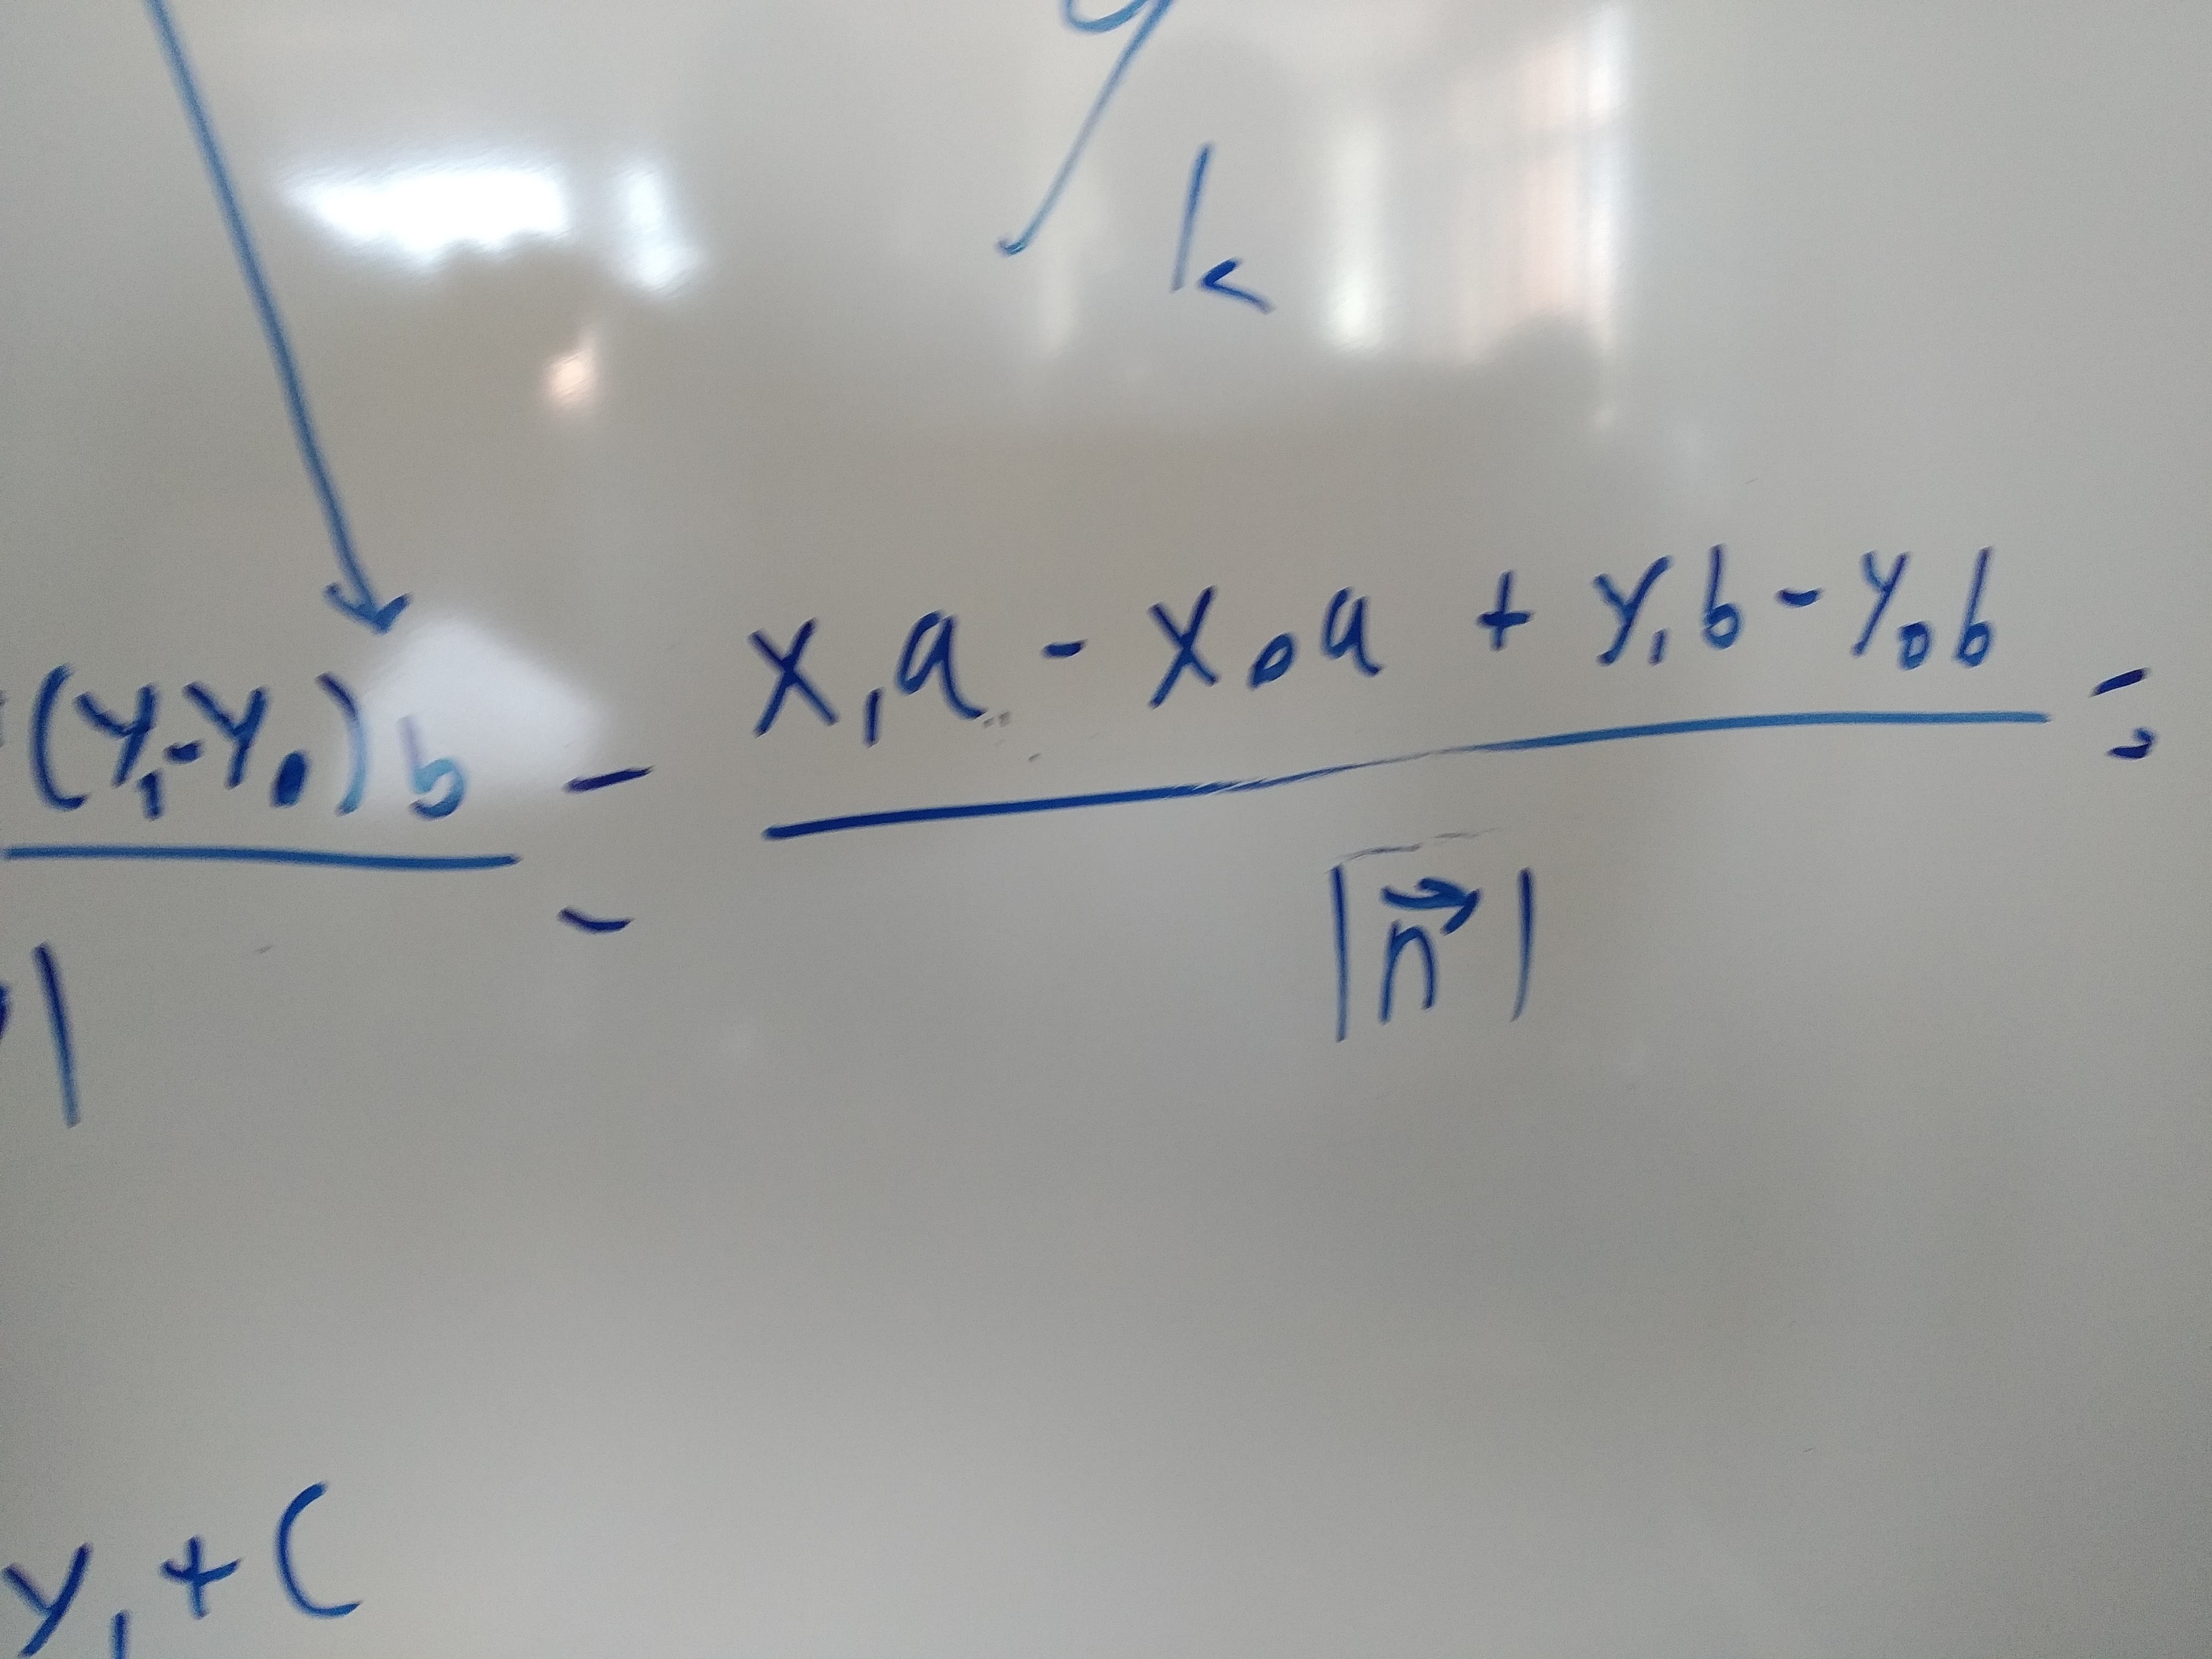 k
(y₁-y₀)b = x₁a - x₀a + y₁b - y₀b =
| |n⃗|
y₁ + c